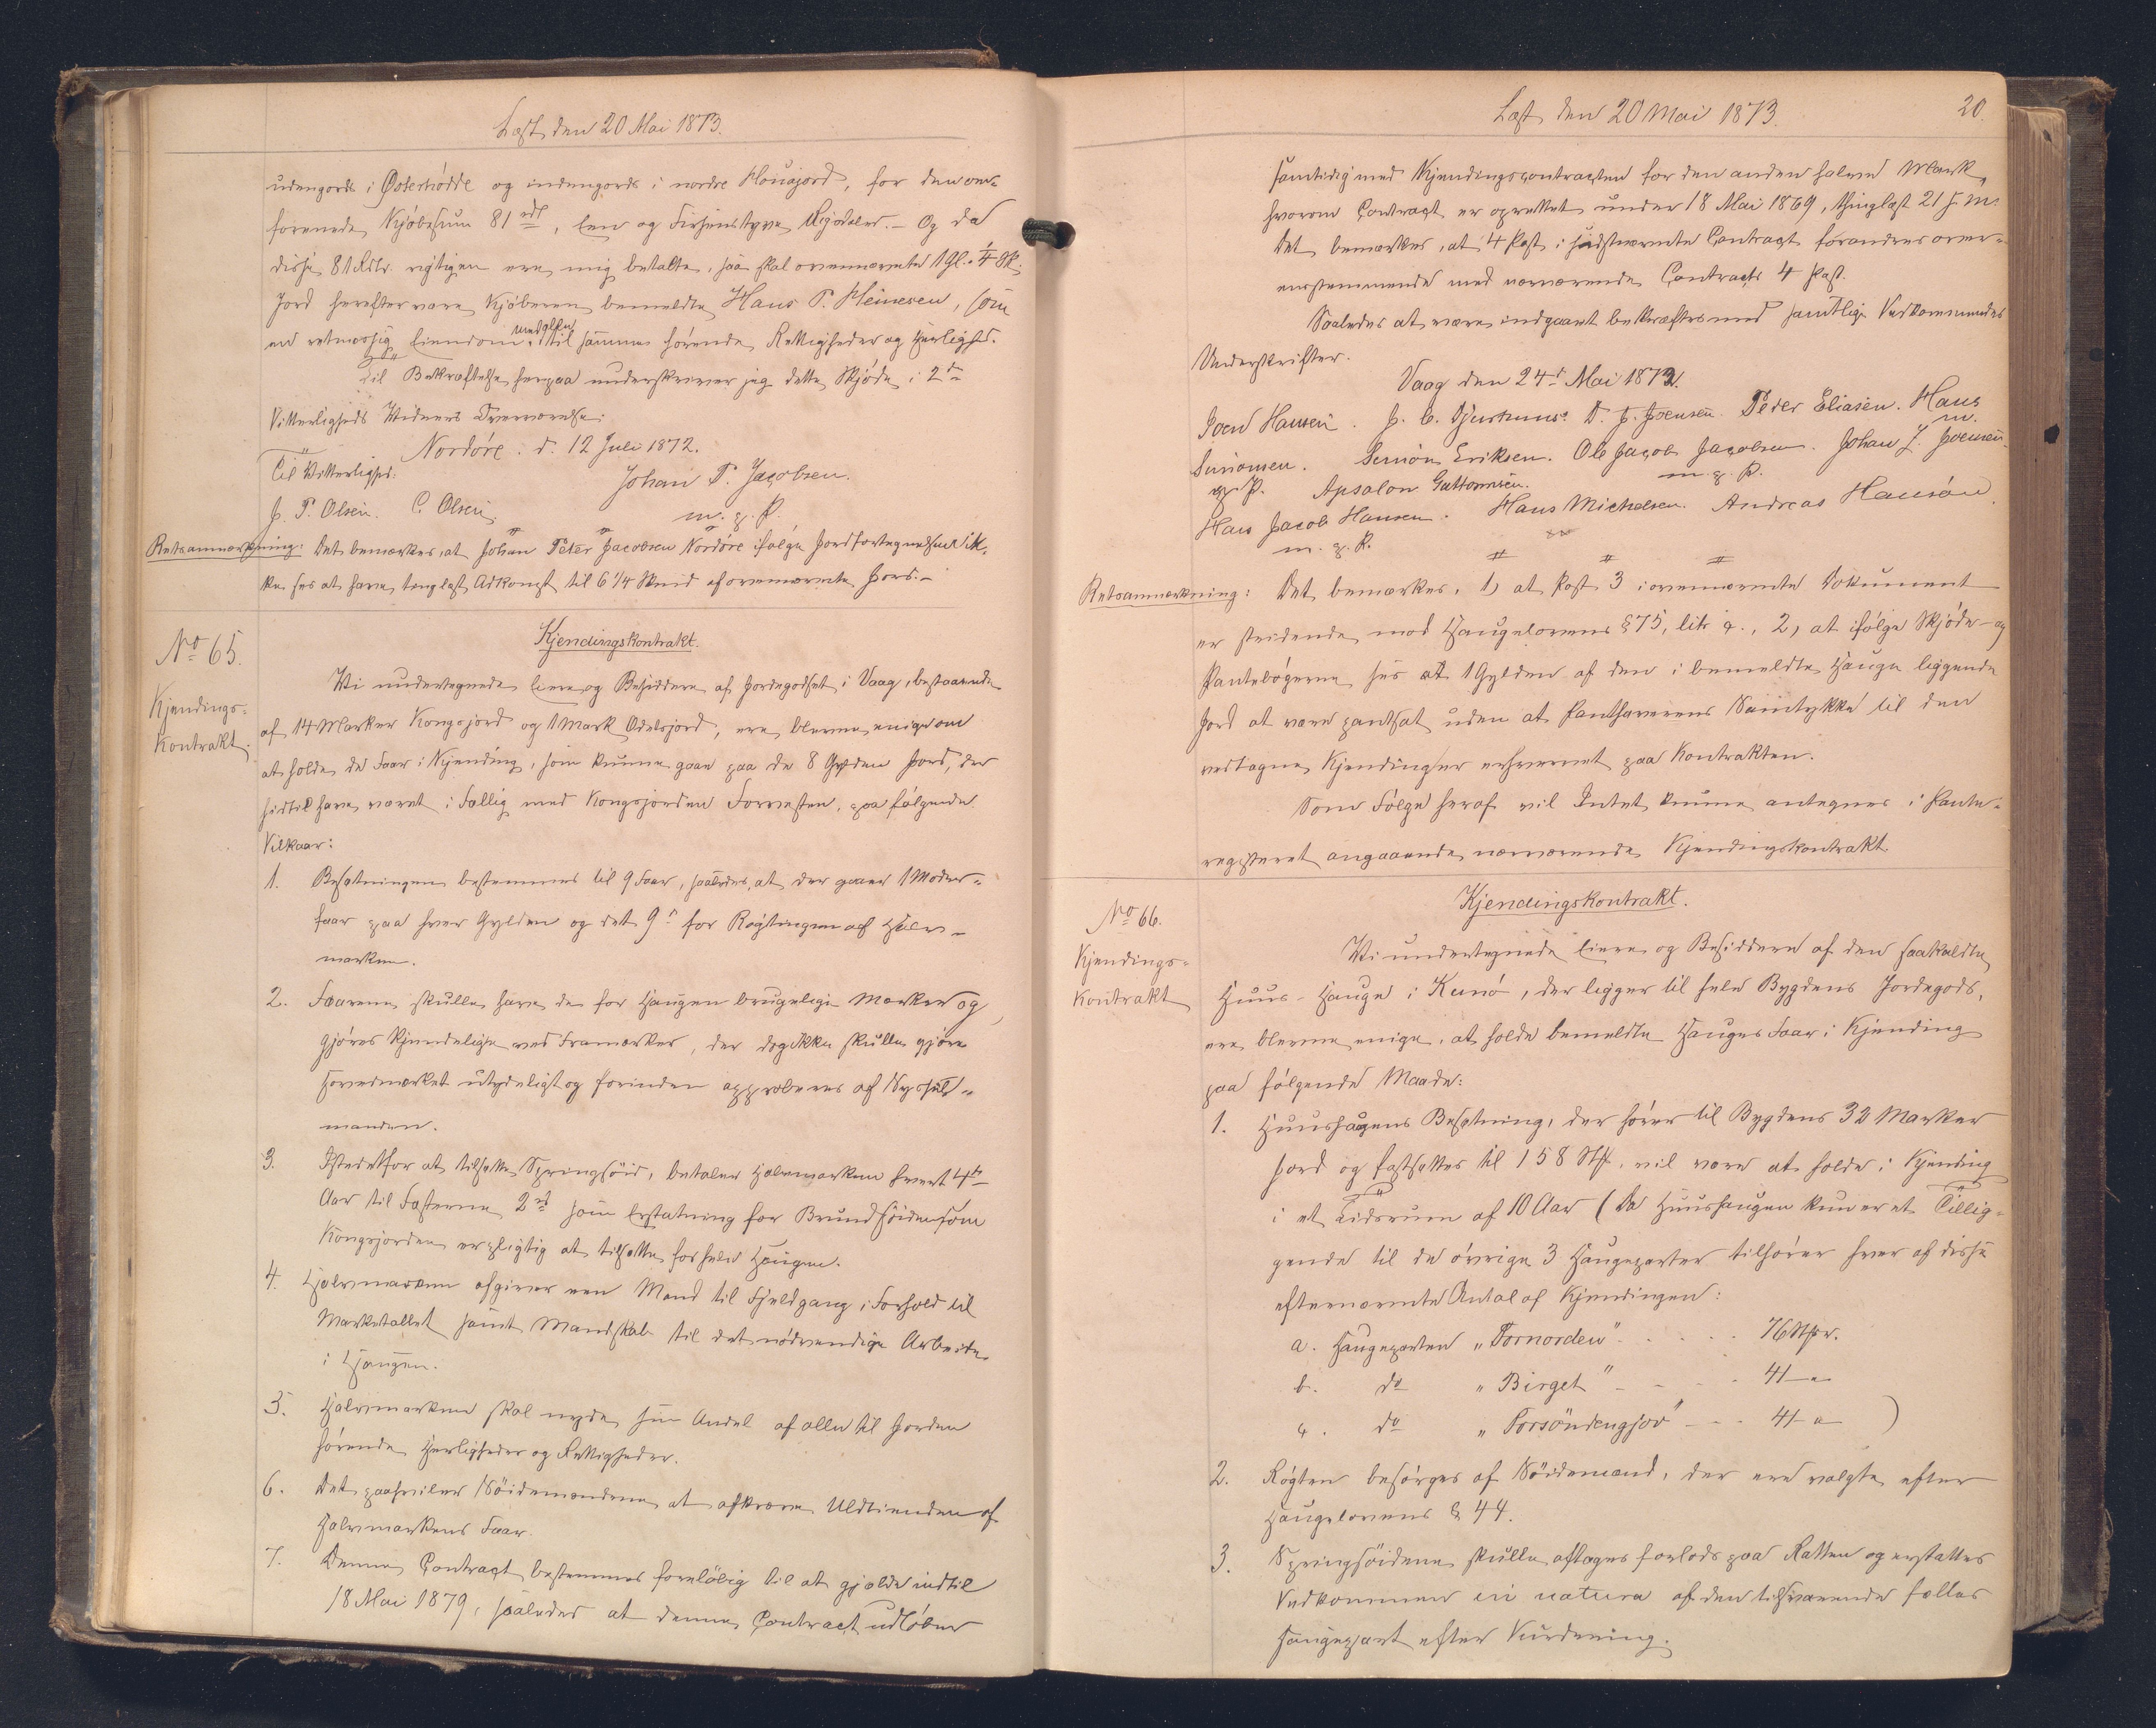 Læst den 20 Mai 1873.
udengords i Østerhødde og indengords i nordre Houajord, for den over-
forenede Kjøbesum 81 rdl, een og Firsindstyve Rigsdaler. – Og da
disse 81 Rdlr. rigtigen ere mig betalte, saa skal ovennævnte 1 Gl. 4 Sk.
Jord herefter være Kjøberen bemeldte Hans P. Heinesen, som
en retmæssig Eiendom, med alle til samme hørende Rettigheder og Herlighed.
Til Bekræftelse herpaa underskriver jeg dette Skjøde i 2de
Vitterligheds Vidners Overværelse.
Nordøre. d. 12 Juli 1872.
Til Vitterlighed: Johan P. Jacobsen.
J. P. Olsen. C. Olsen. m. g. P.
Retsanmærkning: Det bemærkes, at Johan Peter Jacobsen Nordøre ifølge Jordfortegnelsen ik-
ke ses at have tinglæst Adkomst til 6 1/4 Skind af ovennævnte Jord. –
No 65.
Kjendings-
Kontrakt.
Kjendingskontrakt.
Vi undertegnede Eiere og Besiddere af Jordegodset i Vaag, bestaaende
af 14 Marker Kongsjord og 1 Mark Odelsjord, ere blevne enige om
at holde de Faar i Kjending, som kunne gaae paa de 8 Gylden Jord, der
hidtil have været i Fællig med Kongsjorden Forvesten, paa følgende
Vilkaar:
1. Besætningen bestemmes til 9 Faar, saaledes, at der gaaer 1 Moder-
faar paa hver Gylden og det 9de for Røgtingen af Halv-
marken.
2. Faarene skulle have de for Haugen brugelige Mærker og
gjøres kjendelige ved Framærker, der dog ikke skulle gjøre
Hovedmærket utydeligt og forinden approberes af Syssel-
manden.
3. Istedetfor at tilsætte Springsöid, betaler Halvmarken hvert 4de
Aar til Fæsterne 2 rd som Erstatning for Brundsöiden som
Kongsjorden er pligtig at tilsætte for hele Haugen.
4. Halvmarken afgiver een Mand til Fjeldgang i Forhold til
Marketallet samt Mandskab til det nødvendige Arbeide
i Haugen.
5. Halvmarken skal nyde sin Andel af alle til Jorden
hørende Herligheder og Rettigheder.
6. Det paahviler Söidemændene at afkræve Uldtienden af
Halvmarkens Faar.
7. Denne Contract bestemmes foreløbig til at gjælde indtil
18 Mai 1879, saaledes at denne Contract udløber
Læst den 20 Mai 1873. 20.
samtidig med Kjendingscontracten for den anden halve Mark,
hvorom Contract er oprettet under 18 Mai 1869, thinglæst 21 s. M.
Det bemærkes, at 4 Post i sidstnævnte Contract forandres over-
ensstemmende med nærværende Contracts 4 Post.
Saaledes at være indgaaet bekræftes med samtlige Vedkommendes
Underskrifter.
Vaag den 24de Mai 1872.
Joen Hansen. J. C. Djurhuus. D. J. Joensen. Peder Eliasen. Hans
Simonsen. Simon Eriksen. Ole Jacob Jacobsen. Johan J. Joensen.
m. g. P. Apsalon Guttormsen. m. g. P.
Hans Jacob Hansen. Hans Michelsen. Andreas Hansen.
m. g. P.
Retsanmærkning: Det bemærkes, 1) at Post 3 i ovennævnte Dokument
er stridende mod Haugelovens § 75, litr c., 2) at ifølge Skjøde- og
Pantebøgerne ses at 1 Gylden af den i bemeldte Hauge liggende
Jord at være pantsat uden at Panthaverens Samtykke til den
vedtagne Kjending er erhvervet paa Kontrakten.
Som Følge heraf vil Intet kunne antegnes i Pante-
registeret angaaende nærværende Kjendingskontrakt.
No 66.
Kjendings-
Kontrakt
Kjendingskontrakt.
Vi undertegnede Eiere og Besiddere af den saakaldte
Huus-Hauge i Kunø, der ligger til hele Bygdens Jordegods,
ere blevne enige, at holde bemeldte Hauges Faar i Kjending
paa følgende Maade:
1. Huushaugens Besætning, der hører til Bygdens 32 Marker
Jord og fastsættes til 158 Stk, vil være at holde i Kjending
i et Tidsrum af 10 Aar (Da Huushaugen kun er et Tillig-
gende til de øvrige 3 Haugeparter tilhører hver af disse
efternævnte Antal af Kjendingen:
a. Haugeparten "Fornorden" . . . . . 76 Stkr.
b. do "Birget" - - - 41 –"–
c. do "Forsöndengjov" - - - 41 –"– )
2. Røgten besørges af Söidemænd, der ere valgte efter
Haugelovens § 44.
3. Springsöidene skulle aftages forlods paa Rætten og erstattes
Vedkommen in natura af den tilsvarende fælles
Haugepart efter Vurdering.